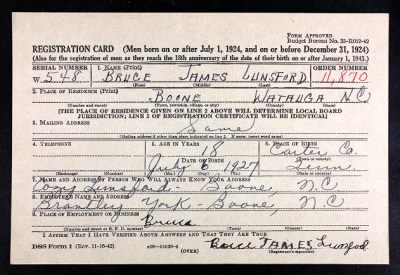 FORM APPROVED
Budget Bureau No. 33-R012-42
REGISTRATION CARD (Men born on or after July 1, 1924, and on or before December 31, 1924)
(Also for the registration of men as they reach the 18th anniversary of the date of their birth on or after January 1, 1943.)
SERIAL NUMBER 1. NAME (Print) ORDER NUMBER
W 548 BRUCE JAMES LUNSFORD 11,870
(First) (Middle) (Last)
2. PLACE OF RESIDENCE (Print)
BOONE WATAUGA N C
(Number and street) (Town, township, village, or city) (County) (State)
(THE PLACE OF RESIDENCE GIVEN ON LINE 2 ABOVE WILL DETERMINE LOCAL BOARD
JURISDICTION; LINE 2 OF REGISTRATION CERTIFICATE WILL BE IDENTICAL)
3. MAILING ADDRESS
Same
(Mailing address if other than place indicated on line 2. If same, insert word same)
4. TELEPHONE 5. AGE IN YEARS 6. PLACE OF BIRTH
18 Carter Co.
DATE OF BIRTH (Town or county)
6 1927 Tenn
(Exchange) (Number) (Mo.) (Day) (Yr.) (State or country)
7. NAME AND ADDRESS OF PERSON WHO WILL ALWAYS KNOW YOUR ADDRESS
Lunsford - Boone, N C
8. EMPLOYER'S NAME AND ADDRESS
Brantley York - Boone, N C
9. PLACE OF EMPLOYMENT OR BUSINESS
Boone
(Number and street or R. F. D. number) (Town) (County) (State)
I AFFIRM THAT I HAVE VERIFIED ABOVE ANSWERS AND THAT THEY ARE TRUE.
DSS Form 1 (Rev. 11-16-42) (OVER) Bruce JAMES Lunsford